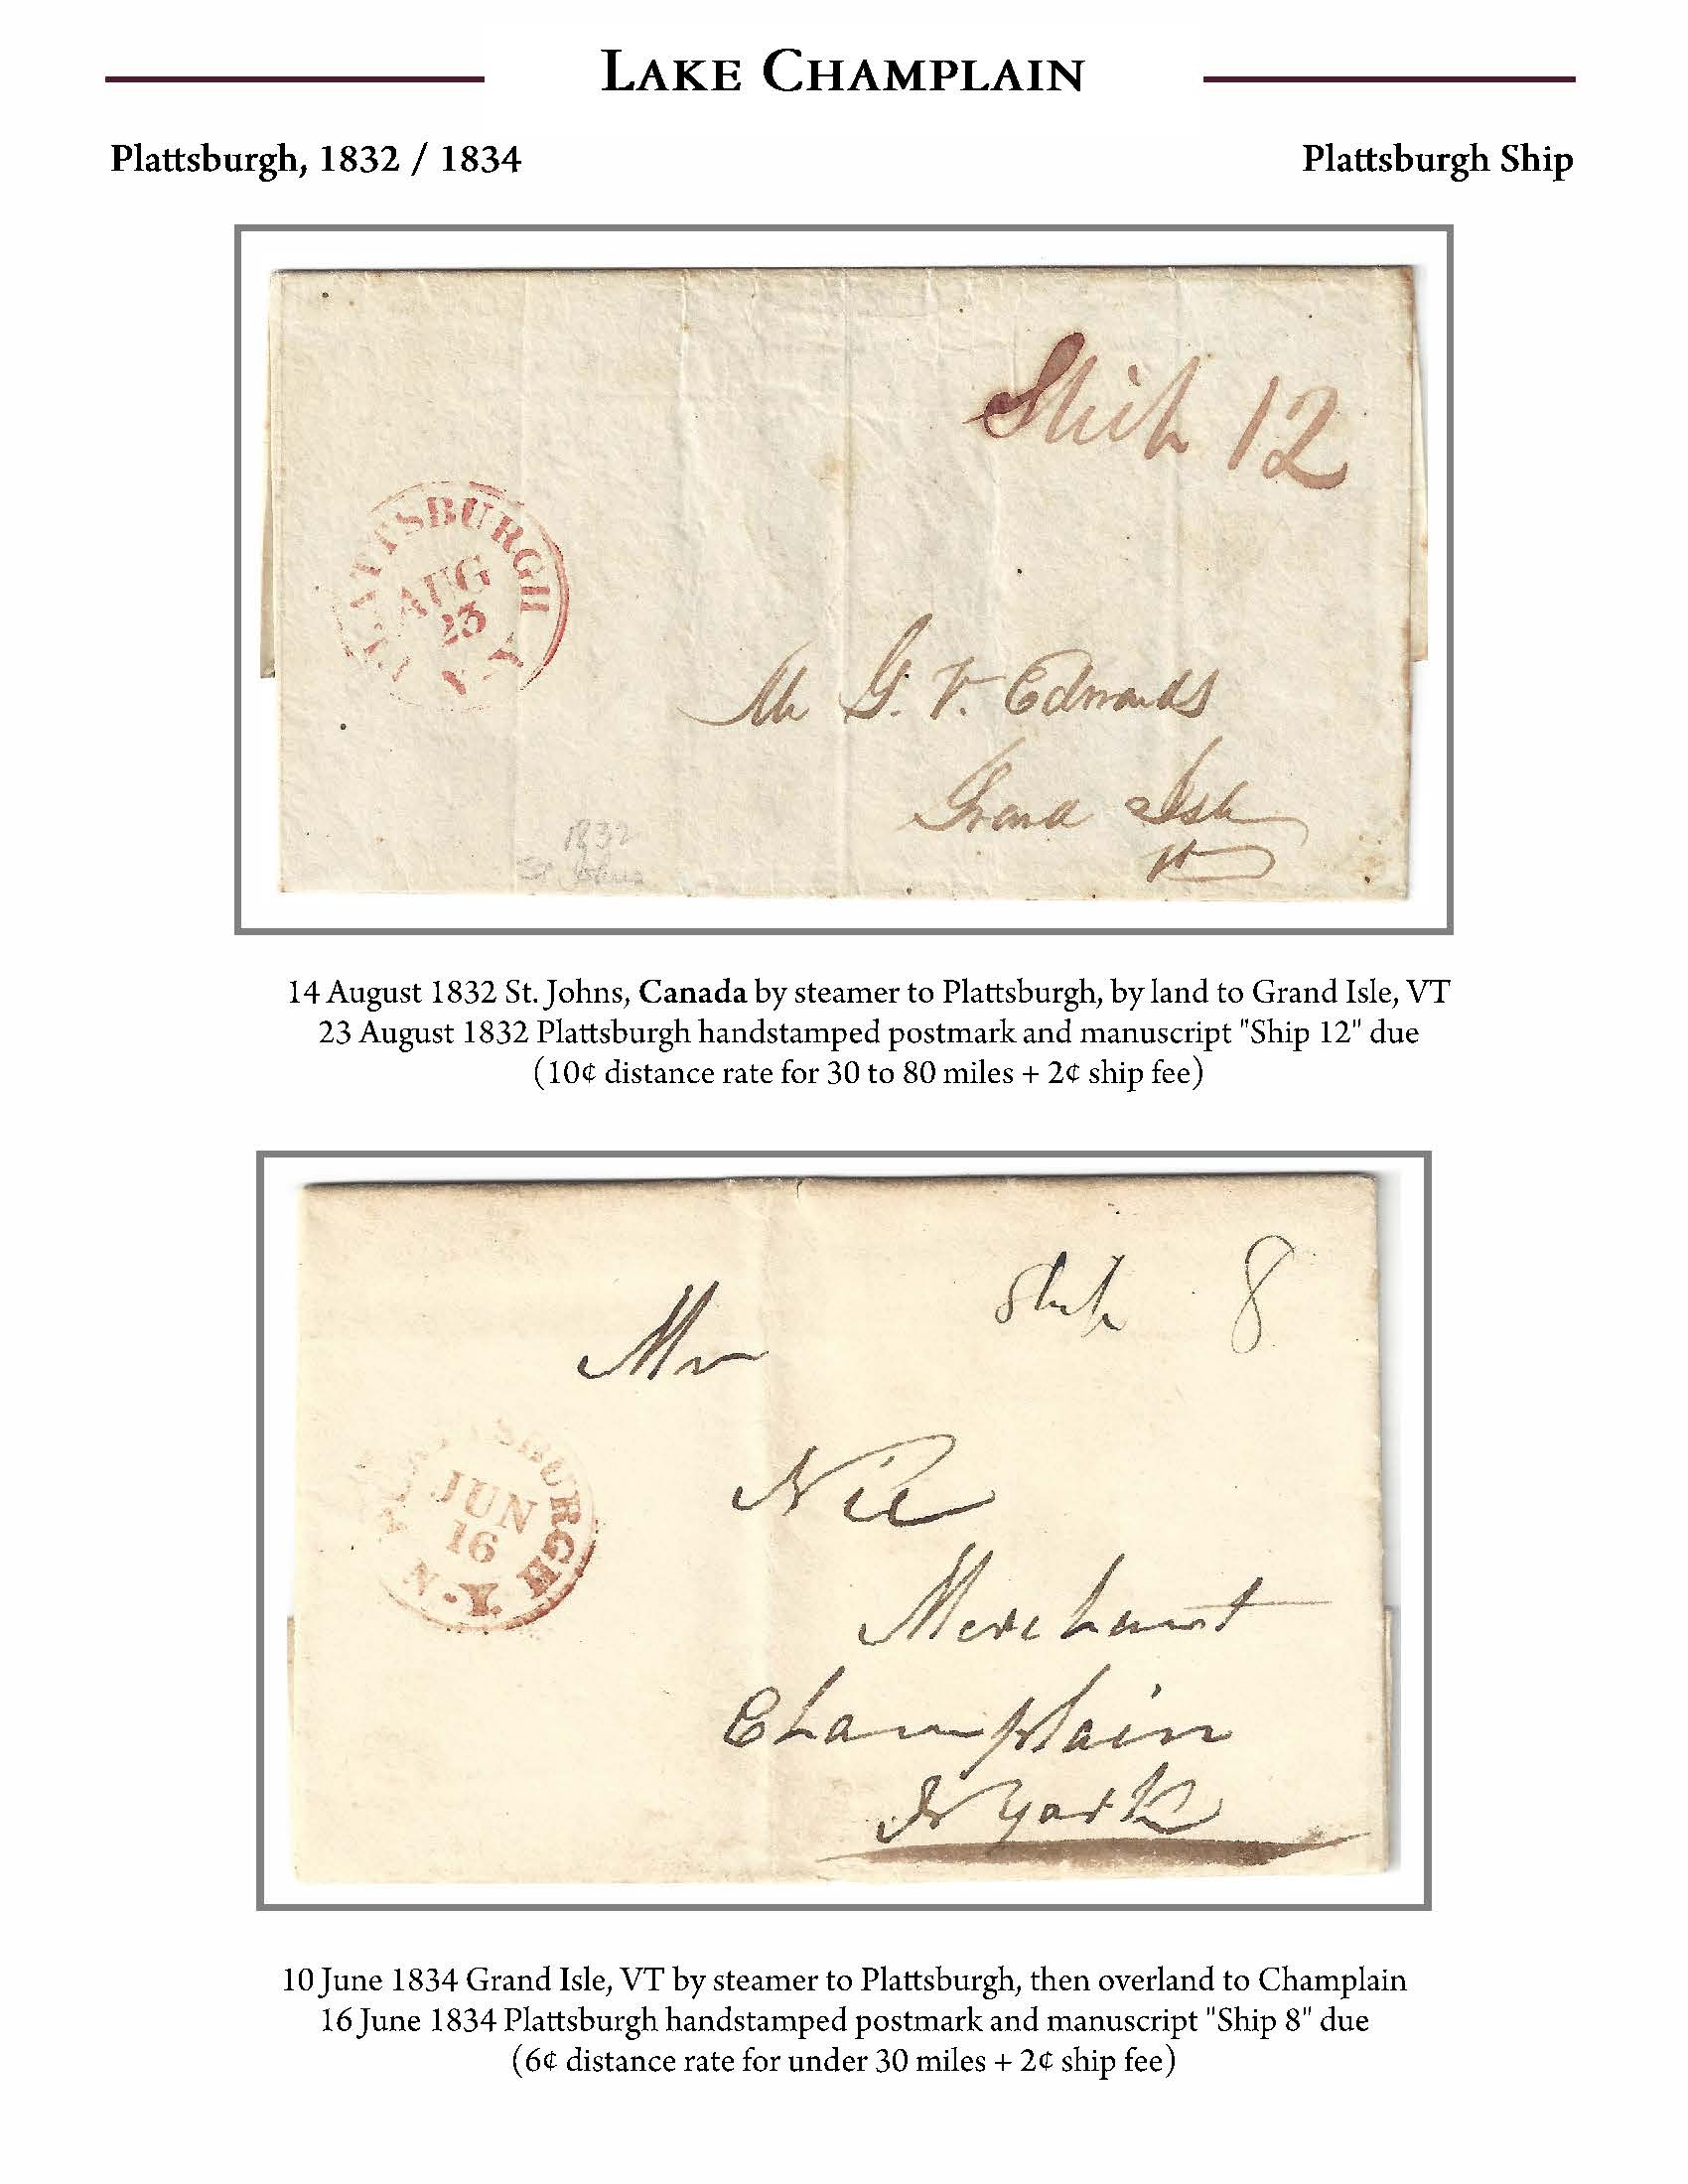 LAKE CHAMPLAIN
Plattsburgh, 1832 / 1834
Plattsburgh Ship
Ship 12
PLATTSBURGH
AUG
23
N.Y
Mr G. V. Edmonds
Grand Isle
Vt
1832
St Johns
14 August 1832 St. Johns, Canada by steamer to Plattsburgh, by land to Grand Isle, VT
23 August 1832 Plattsburgh handstamped postmark and manuscript "Ship 12" due
(10¢ distance rate for 30 to 80 miles + 2¢ ship fee)
Ship 8
Mr
PLATTSBURGH
JUN
16
N.Y.
Merchant
Champlain
N York
10 June 1834 Grand Isle, VT by steamer to Plattsburgh, then overland to Champlain
16 June 1834 Plattsburgh handstamped postmark and manuscript "Ship 8" due
(6¢ distance rate for under 30 miles + 2¢ ship fee)